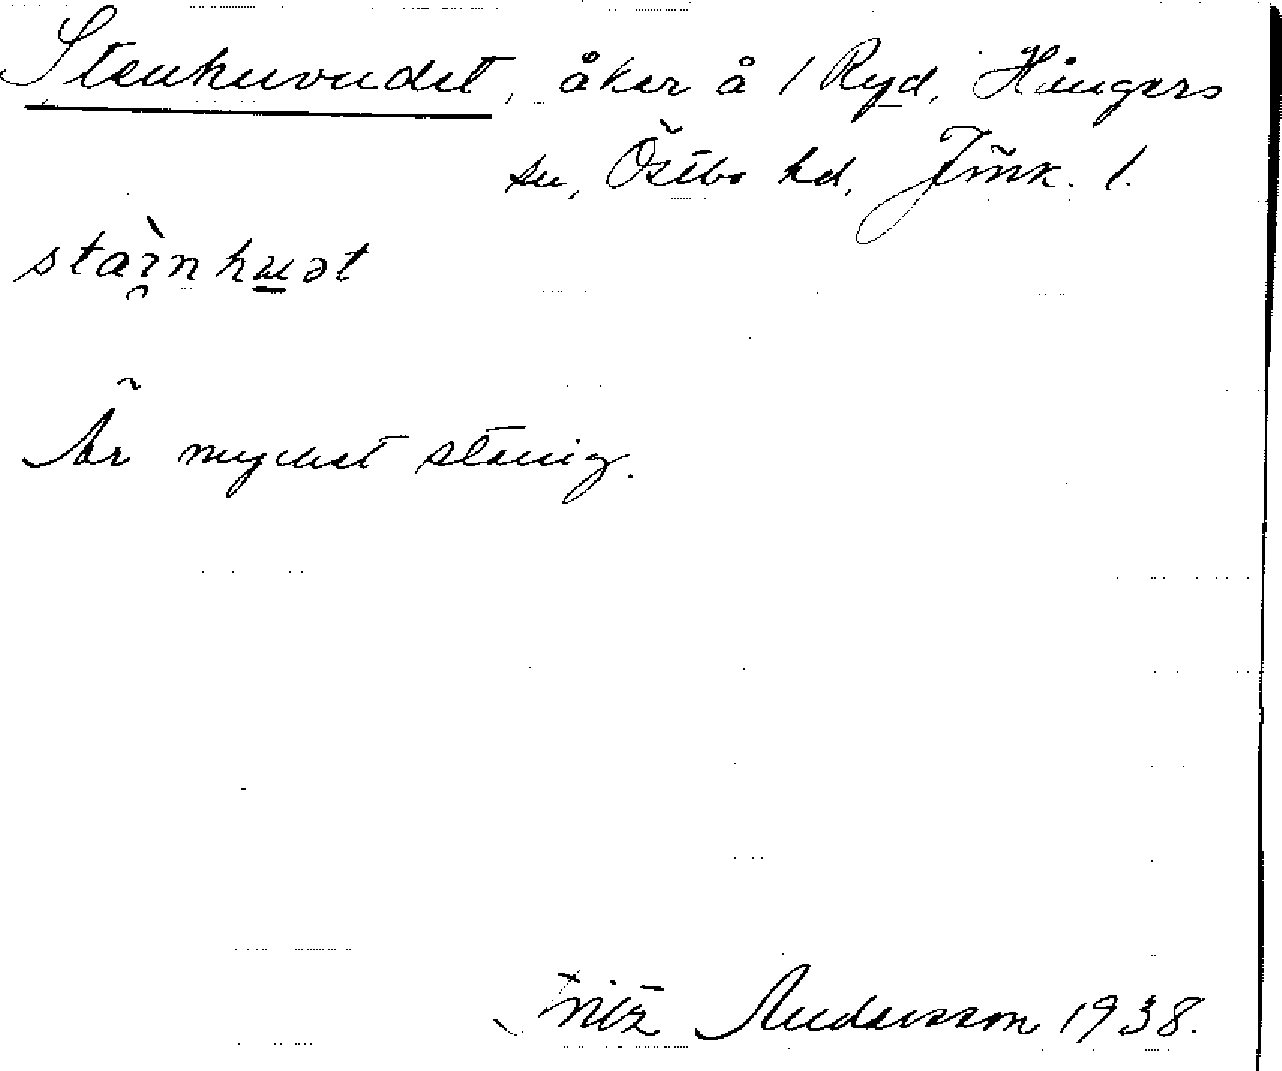 Stenhuvudet, åker å 1 Ryd, Hångers
sn, Östbo hd, Jönk. l.
starnhuət
Är mycket stenig.
Fritz Andersson 1938.